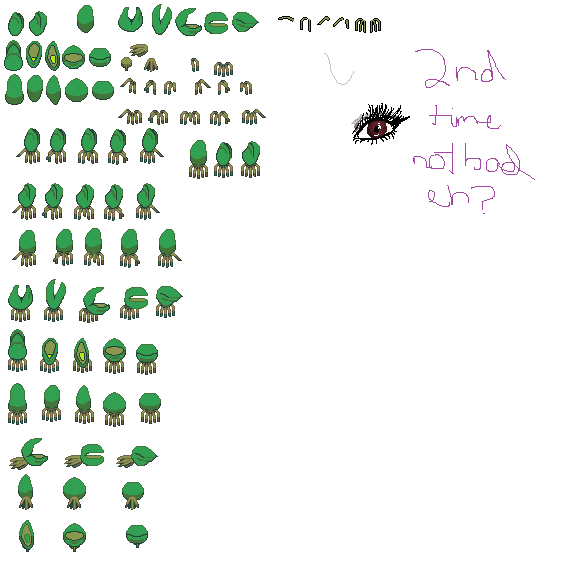 2nd
time
not bad
eh?